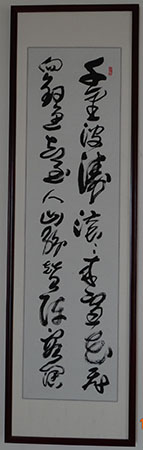 千里波涛滚滚来雪花飞
向钓鱼台人山纷赞阵容阔